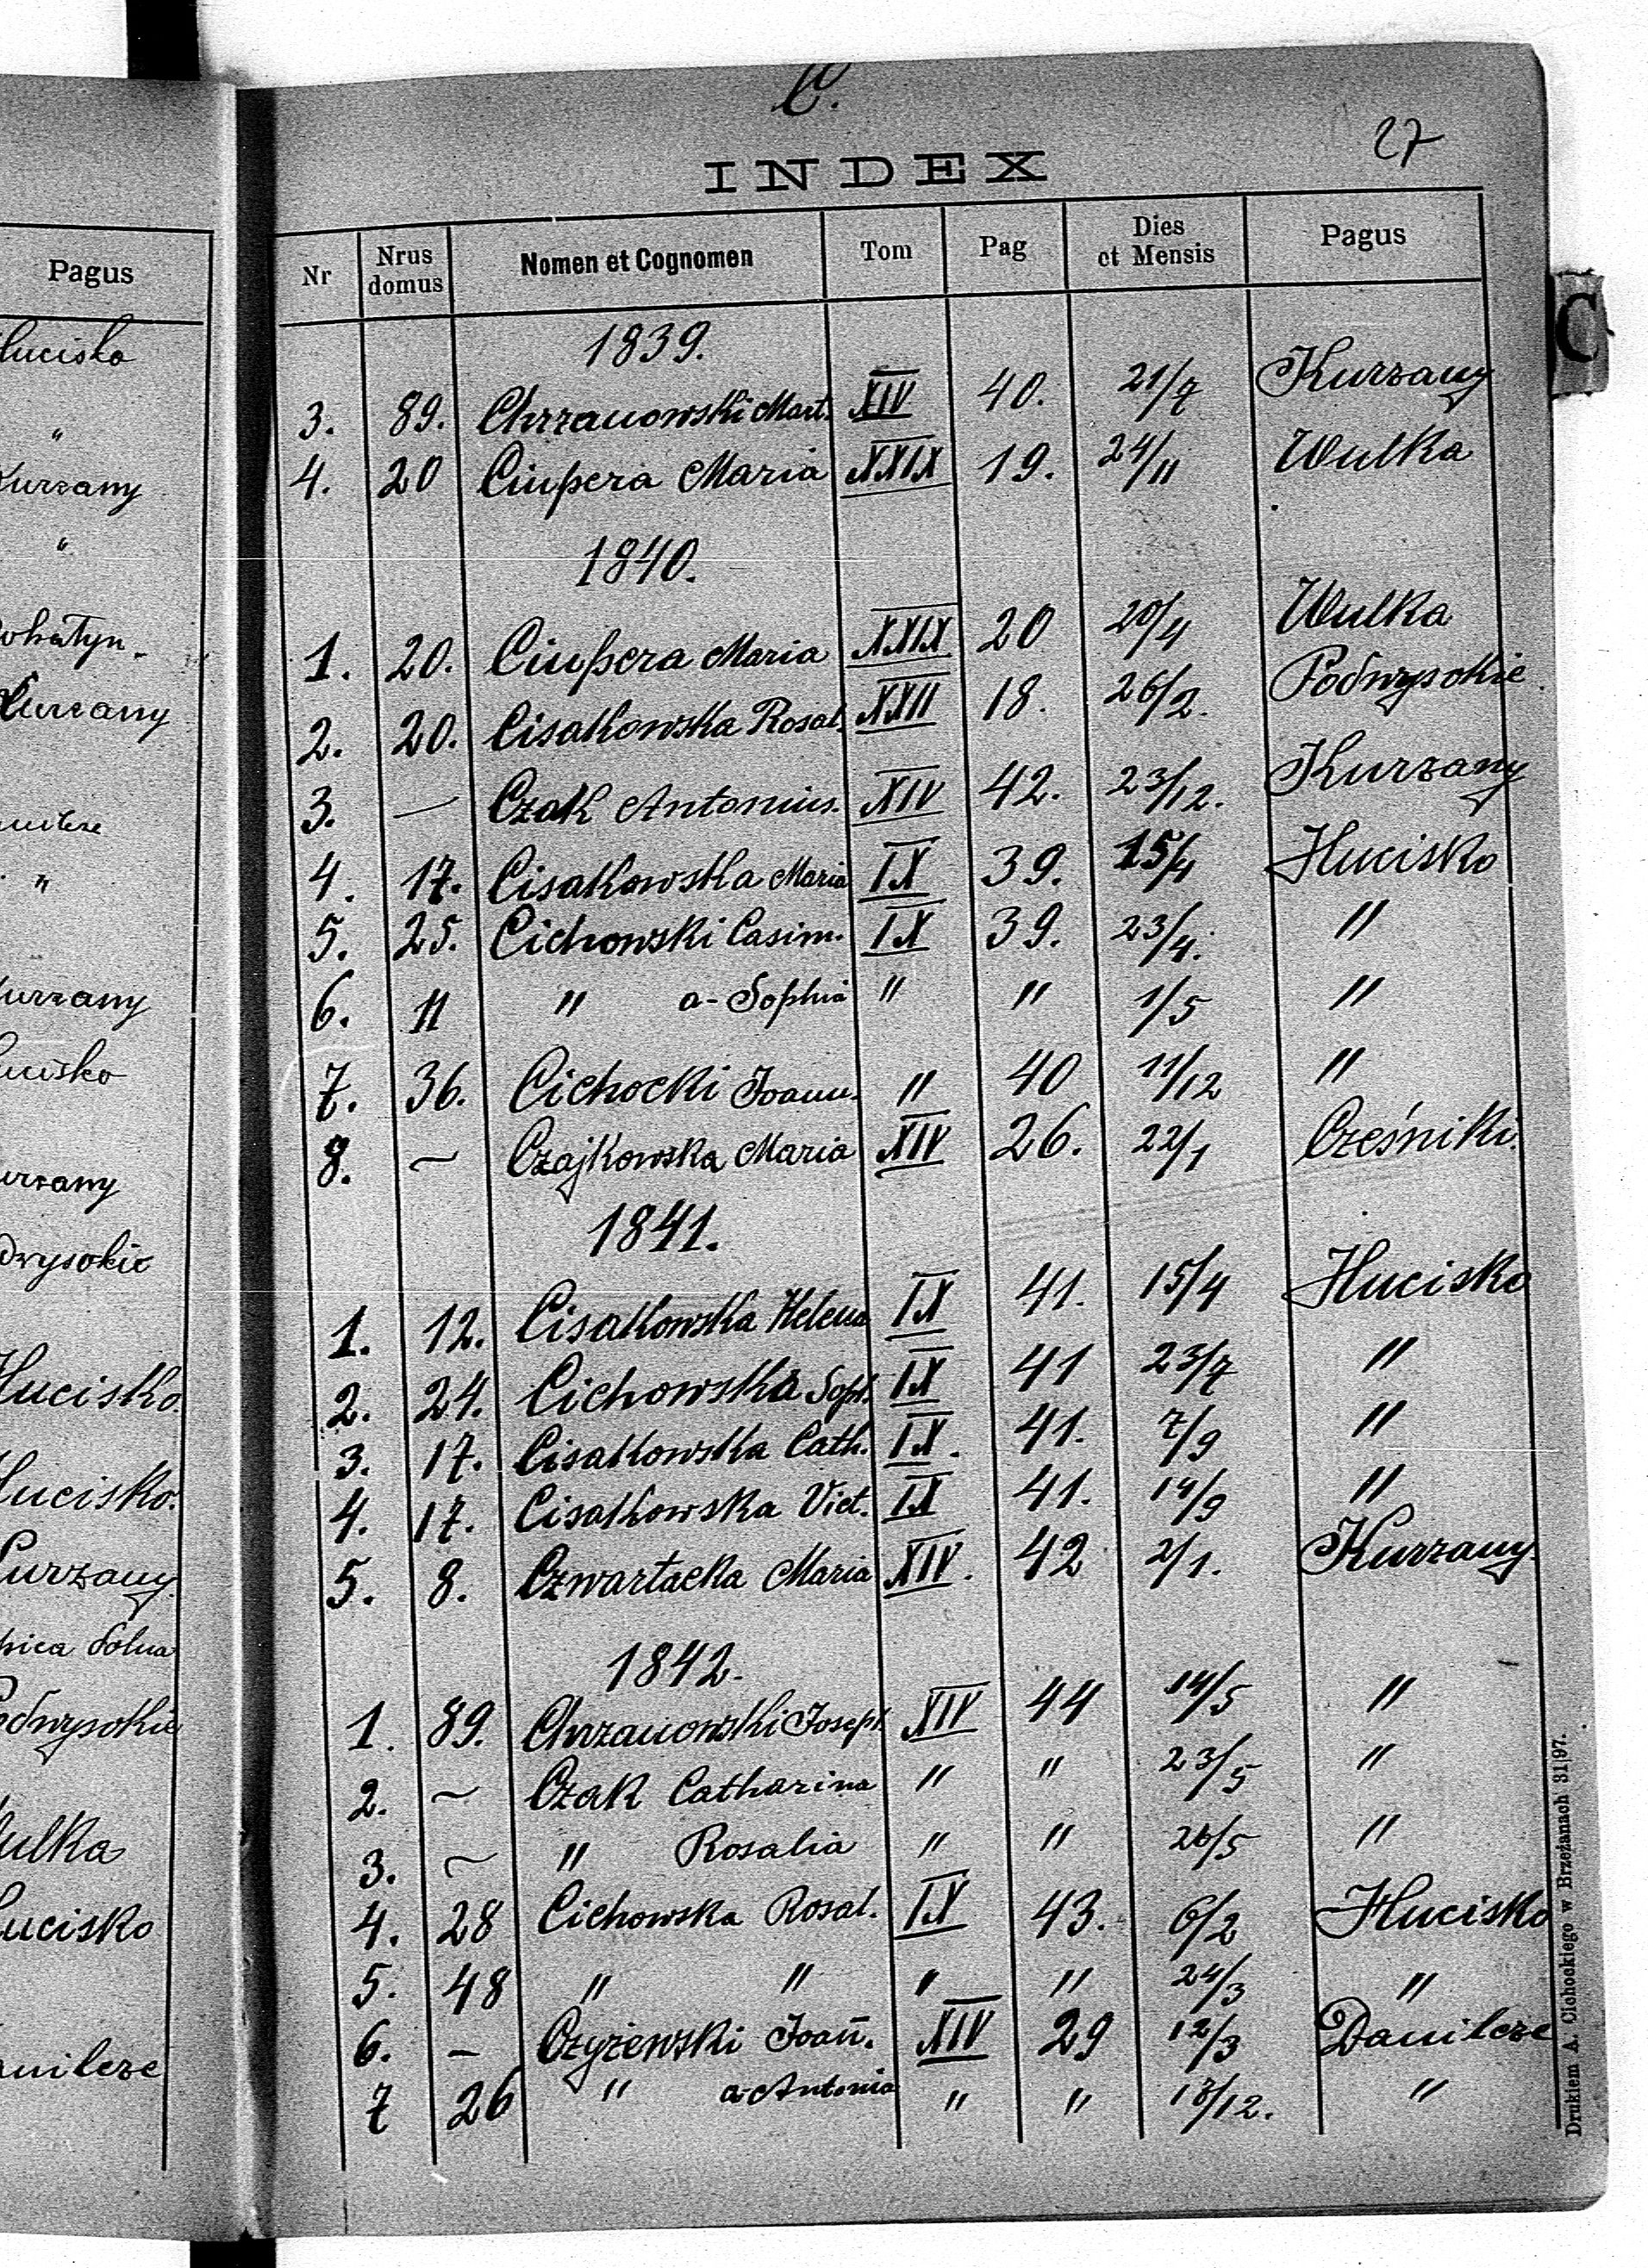 C.
27
INDEX
Pagus
Nr | Nrus domus | Nomen et Cognomen | Tom | Pag | Dies et Mensis | Pagus
1839.
3. 89. Chrzanowski Mart. XIV 40. 21/7 Kurzany
4. 20 Ciupera Maria XXIX 19. 24/11 Wulka
1840.
1. 20. Ciupera Maria XXIX 20 20/4 Wulka
2. 20. Cisakowska Rosal. XXII 18. 26/2. Podwysokie
3. — Czak Antonius. XIV 42. 23/12. Kurzany
4. 17. Cisakowska Maria IX 39. 15/4 Hucisko
5. 25. Cichowski Casim. IX 39. 23/4. "
6. 11 " a-Sophia " " 1/5 "
7. 36. Cichocki Joann. " 40 11/12 "
8. — Czajkowska Maria XIV 26. 22/1 Cześniki.
1841.
1. 12. Cisakowska Helena IX 41. 15/4 Hucisko
2. 24. Cichowska Soph. IX 41 23/7 "
3. 17. Cisakowska Cath. IX. 41. 7/9 "
4. 17. Cisakowska Vict. IX 41. 14/9 "
5. 8. Czwartacka Maria XIV. 42 2/1. Kurzany.
1842.
1. 89. Chrzanowski Joseph. XIV 44 14/5 "
2. — Czak Catharina " " 23/5 "
3. — " Rosalia " " 26/5 "
4. 28 Cichowska Rosal. IX 43. 6/2 Hucisko
5. 48 " " " " 24/3 "
6. — Czyżewski Joan̄. XIV 29 12/3 Danilcze
7 26 " a-Antonia " " 18/12. "
Drukiem A. Cichockiego w Brzeżanach 31|97.
C